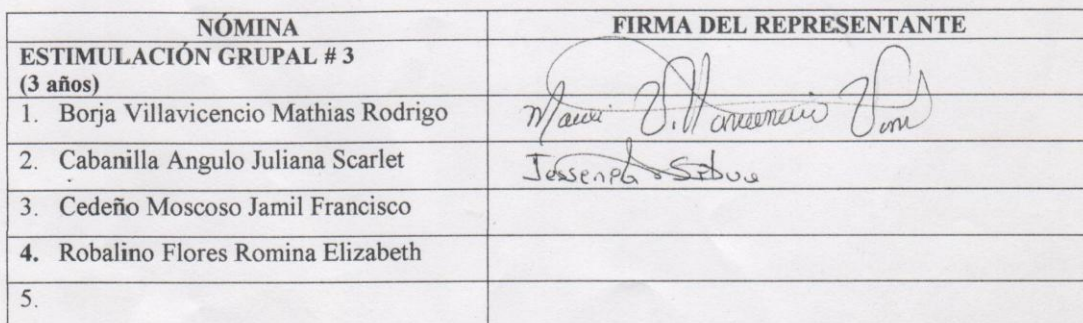 NÓMINA FIRMA DEL REPRESENTANTE
ESTIMULACIÓN GRUPAL # 3
(3 años)
1. Borja Villavicencio Mathias Rodrigo
2. Cabanilla Angulo Juliana Scarlet
3. Cedeño Moscoso Jamil Francisco
4. Robalino Flores Romina Elizabeth
5.